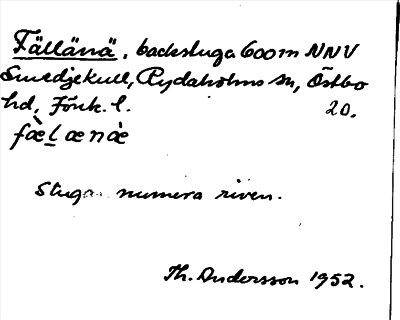 Fällänä, backstuga 600 m NNV
Smedjekull, Rydaholms sn, Östbo
hd, Jönk. l. 20.
fæ̀l̠ænæ̀
Stugan numera riven.
Th. Andersson 1952.